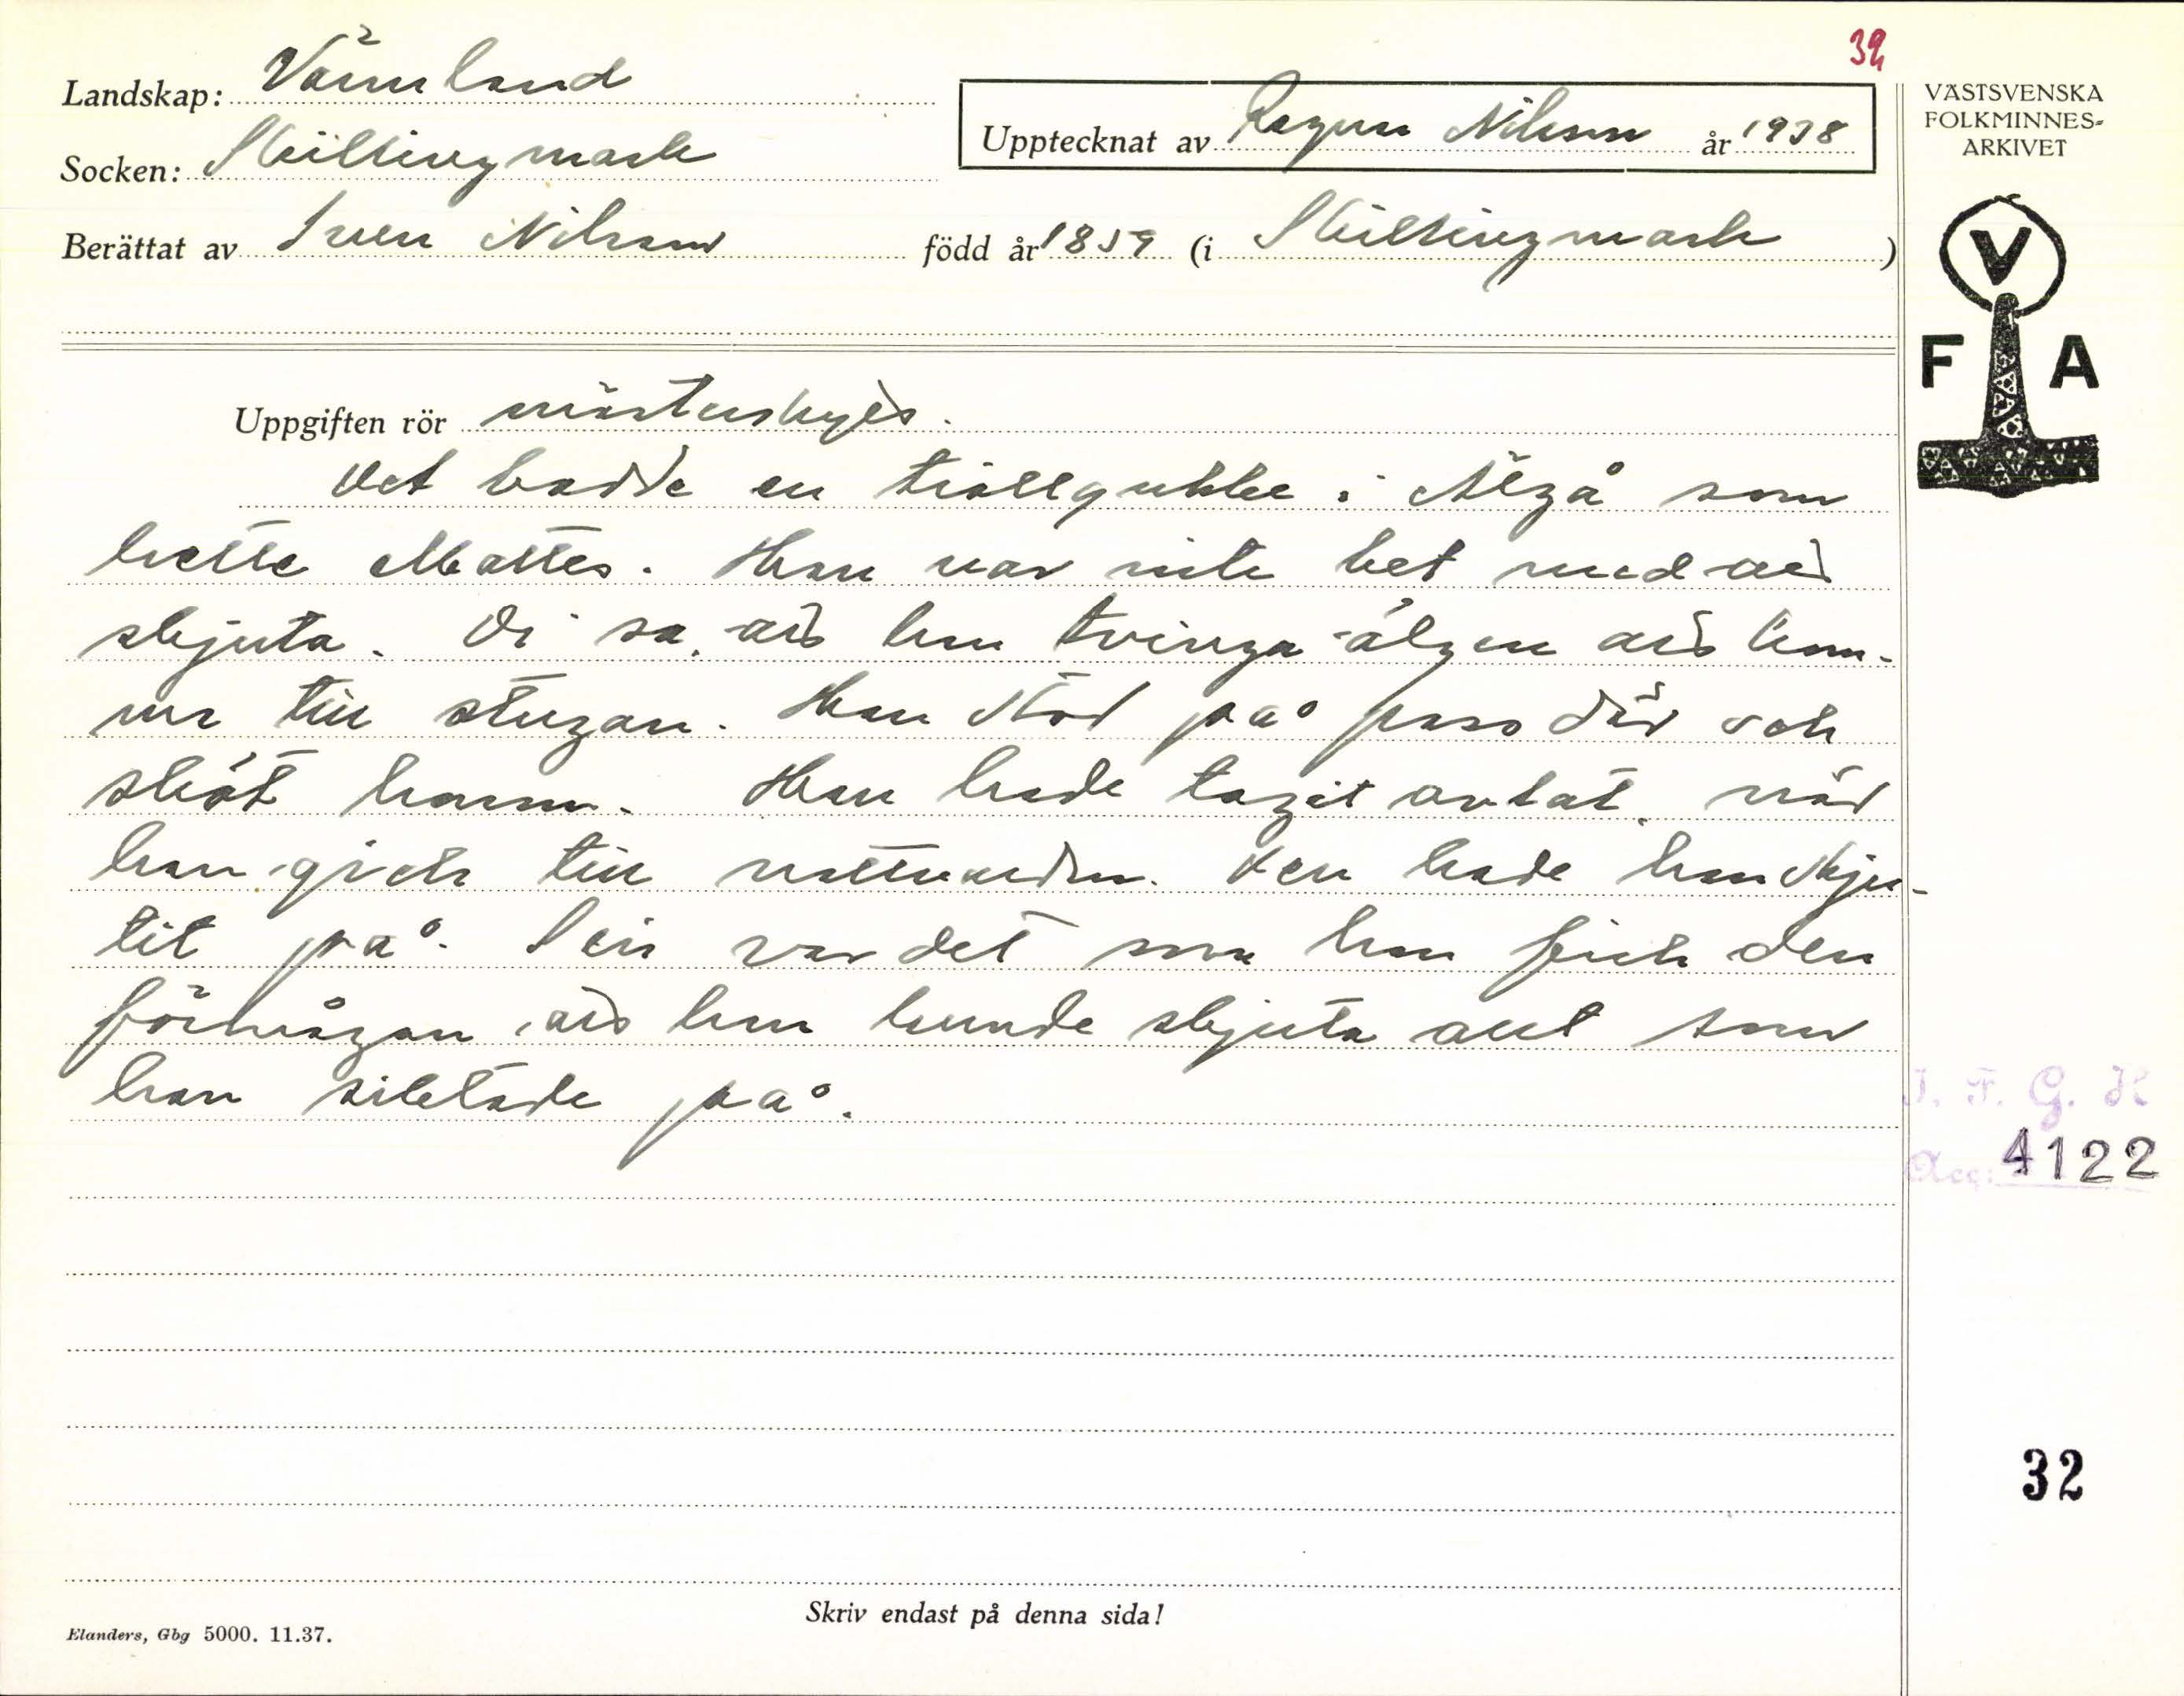 32
Landskap: Värmland
Upptecknat av Ragnar Nilsson år 1938
VÄSTSVENSKA
FOLKMINNES-
ARKIVET
Socken: Skillingmark
Berättat av Sven Nilsson född år 1859 (i Skillingmark)
V
F A
Uppgiften rör mästerskytt.
Det bodde en trollgubbe i Älgå som
hette Mattes. Han var inte bet med att
skjuta. Di sa, att han tvinga älgen att kom-
ma till stugan. Han stod på pass där och
sköt honom. Han hade tagit oblat, när
han gick till nattvarden. Den hade han skju-
tit på. Sen var det som han fick den
förmågan, att han kunde skjuta allt som
han siktade på.
I. F. G. H
Acc: 4122
32
Skriv endast på denna sida!
Elanders, Gbg 5000. 11.37.